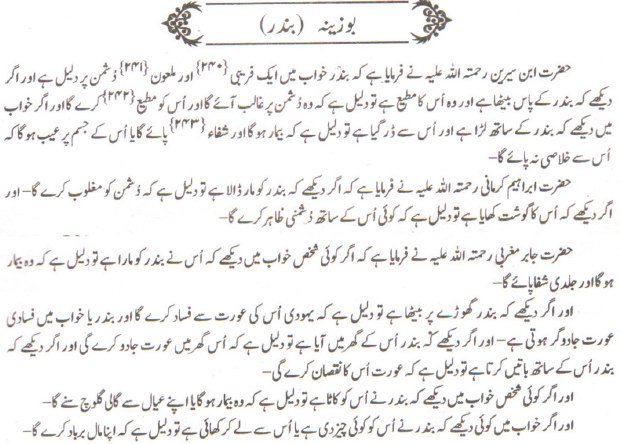 بوزینہ (بندر)
حضرت ابن سیرین رحمتہ اللہ علیہ نے فرمایا ہے کہ بندر خواب میں ایک فریبی {۲۴۰} اور ملعون {۲۴۱} دُشمن پر دلیل ہے اور اگر
دیکھے کہ بندر کے پاس بیٹھا ہے اور وہ اُس کا مطیع ہے تو دلیل ہے کہ وہ دُشمن پر غالب آئے گا اور اُس کو مطیع {۲۴۲} کرے گا اور اگر خواب
میں دیکھے کہ بندر کے ساتھ لڑا ہے اور اُس سے ڈر گیا ہے تو دلیل ہے کہ بیمار ہو گا اور شفاء {۲۴۳} پائے گا یا اُس کے جسم پر عیب ہو گا کہ
اُس سے خلاصی نہ پائے گا–
حضرت ابراہیم کرمانی رحمتہ اللہ علیہ نے فرمایا ہے کہ اگر دیکھے کہ بندر کو مار ڈالا ہے تو دلیل ہے کہ دُشمن کو مغلوب کرے گا– اور
اگر دیکھے کہ اُس کا گوشت کھایا ہے تو دلیل ہے کہ کوئی اُس کے ساتھ دُشمنی ظاہر کرے گا–
حضرت جابر مغربی رحمتہ اللہ علیہ نے فرمایا ہے کہ اگر کوئی شخص خواب میں دیکھے کہ اُس نے بندر کو مارا ہے تو دلیل ہے کہ وہ بیمار
ہو گا اور جلدی شفا پائے گا–
اور اگر دیکھے کہ بندر گھوڑے پر بیٹھا ہے تو دلیل ہے کہ یہودی اُس کی عورت سے فساد کرے گا اور بندریا خواب میں فسادی
عورت جادوگر ہوتی ہے– اور اگر دیکھے کہ بندر اُس کے گھر میں آیا ہے تو دلیل ہے کہ اُس گھر میں عورت جادو کرے گی اور اگر دیکھے کہ
بندر اُس کے ساتھ باتیں کرتا ہے تو دلیل ہے کہ عورت اُس کا نقصان کرے گی–
اور اگر کوئی شخص خواب میں دیکھے کہ بندر نے اُس کو کاٹا ہے تو دلیل ہے کہ وہ بیمار ہو گا یا اپنے عیال سے گالی گلوچ سنے گا–
اور اگر خواب میں کوئی دیکھے کہ بندر نے اُس کو کوئی چیز دی ہے یا اُس سے لے کر کھائی ہے تو دلیل ہے کہ اپنا مال برباد کرے گا–